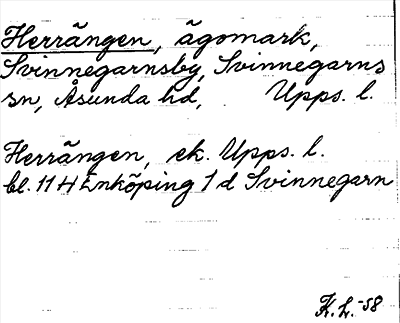 Herrängen, ägomark,
Svinnegarnsby, Svinnegarns
sn, Åsunda hd, Upps. l.
Herrängen, ek. Upps. l.
bl. 11 H Enköping 1 d Svinnegarn
K. L. -58